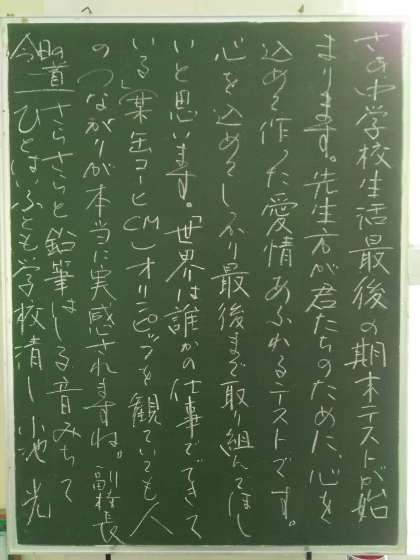 さあ中学校生活最後の期末テストが始
まります。先生方が君たちのために、心を
込めて作った愛情あふれるテストです。
心を込めてしっかり最後まで取り組んでほし
いと思います。「世界は誰かの仕事でできて
いる」（某缶コーヒCM）オリンピックを観ていても人
のつながりが本当に実感されますね。副校長
さらさらと鉛筆はしる音みちて
ひとはいふとも学校清し 小池 光